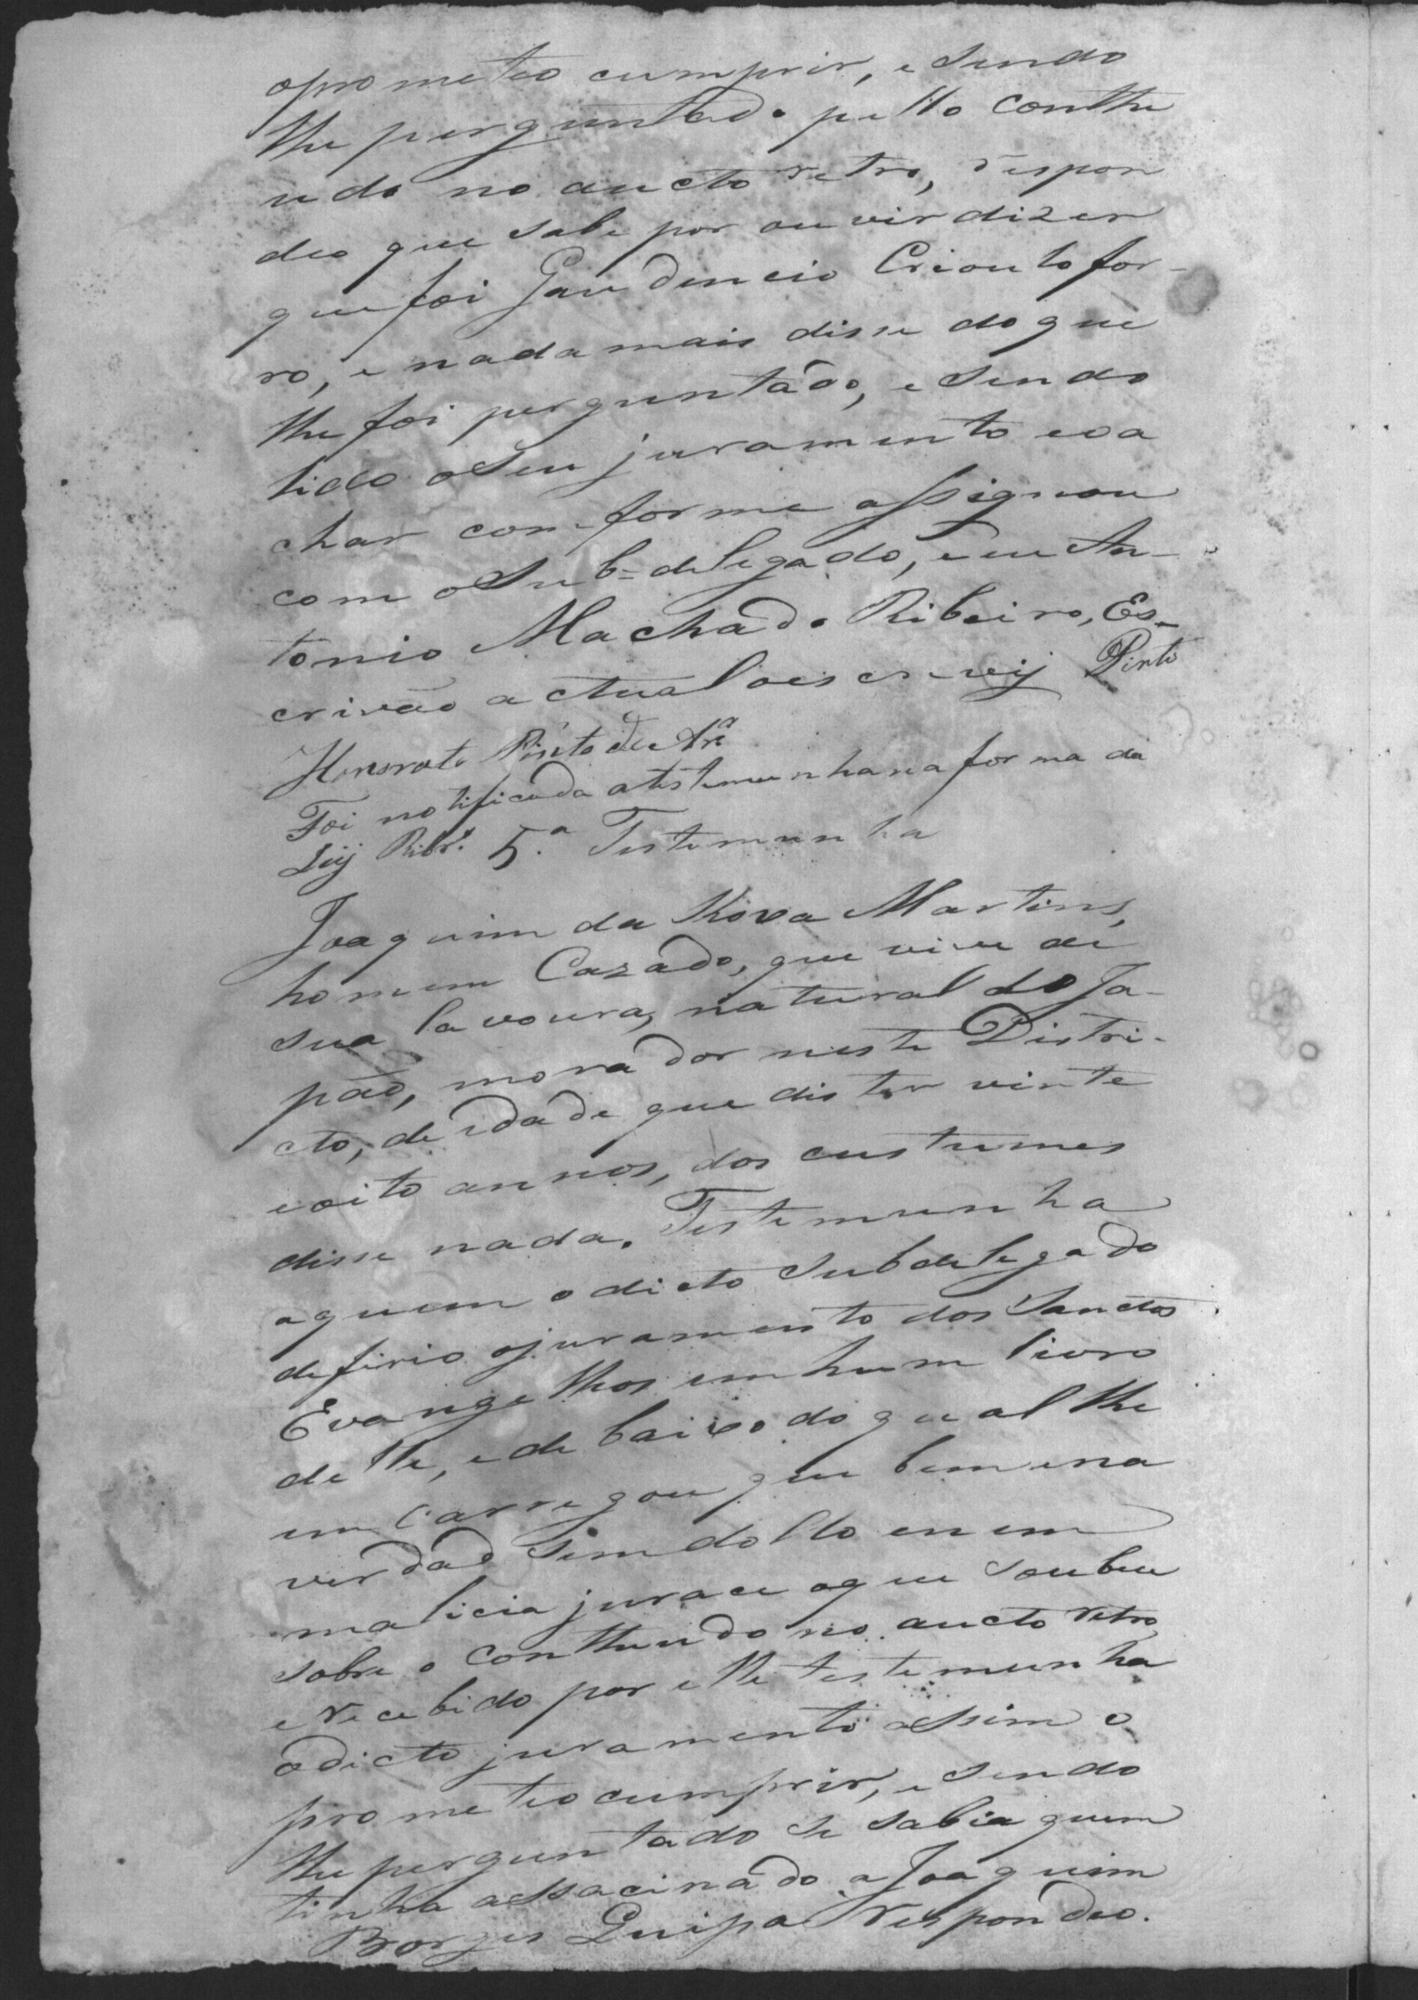 oprometeo cumprir, e sendo
lhe perguntado pello conthe
udo no aucto retro, respon
deo que sabe por ouvir dizer
que foi Gaudencio Crioulo for-
ro, e nada mais disse do que
lhe foi perguntado, e sendo
lido o seu juramento eoa
char conforme assignou
com o Sub=delegado, e eu An-
tonio Machado Ribeiro, Es-
crivão actual o escrevij Pinto
Honorato Pinto de Ar.ª
Foi notificada a testemunha na forma da
Leij Ribr.º 5.ª Testemunha
Joaquim da Martins,
homem Cazado, que vive de
sua lavoura, natural do Ja-
pão, morador neste Distri-
cto, de idade que dis ter vinte
eoito annos, dos custumes
disse nada. Testemunha
aquem o dicto Subdelegado
deferio ojuramento dos Sanctos
Evangelhos em hum livro
delle, e de baixo do qual lhe
emcarregou que bem ena
verdade sem dollo enem
malicia jurace oque soubece
sobre o contheudo no aucto retro,
e recebido por elle testemunha
odicto juramento assim o
prometeo cumprir, e sendo
lhe perguntado se sabia quem
tinha assacinado a Joaquim
Borges Quipa Respondeo.